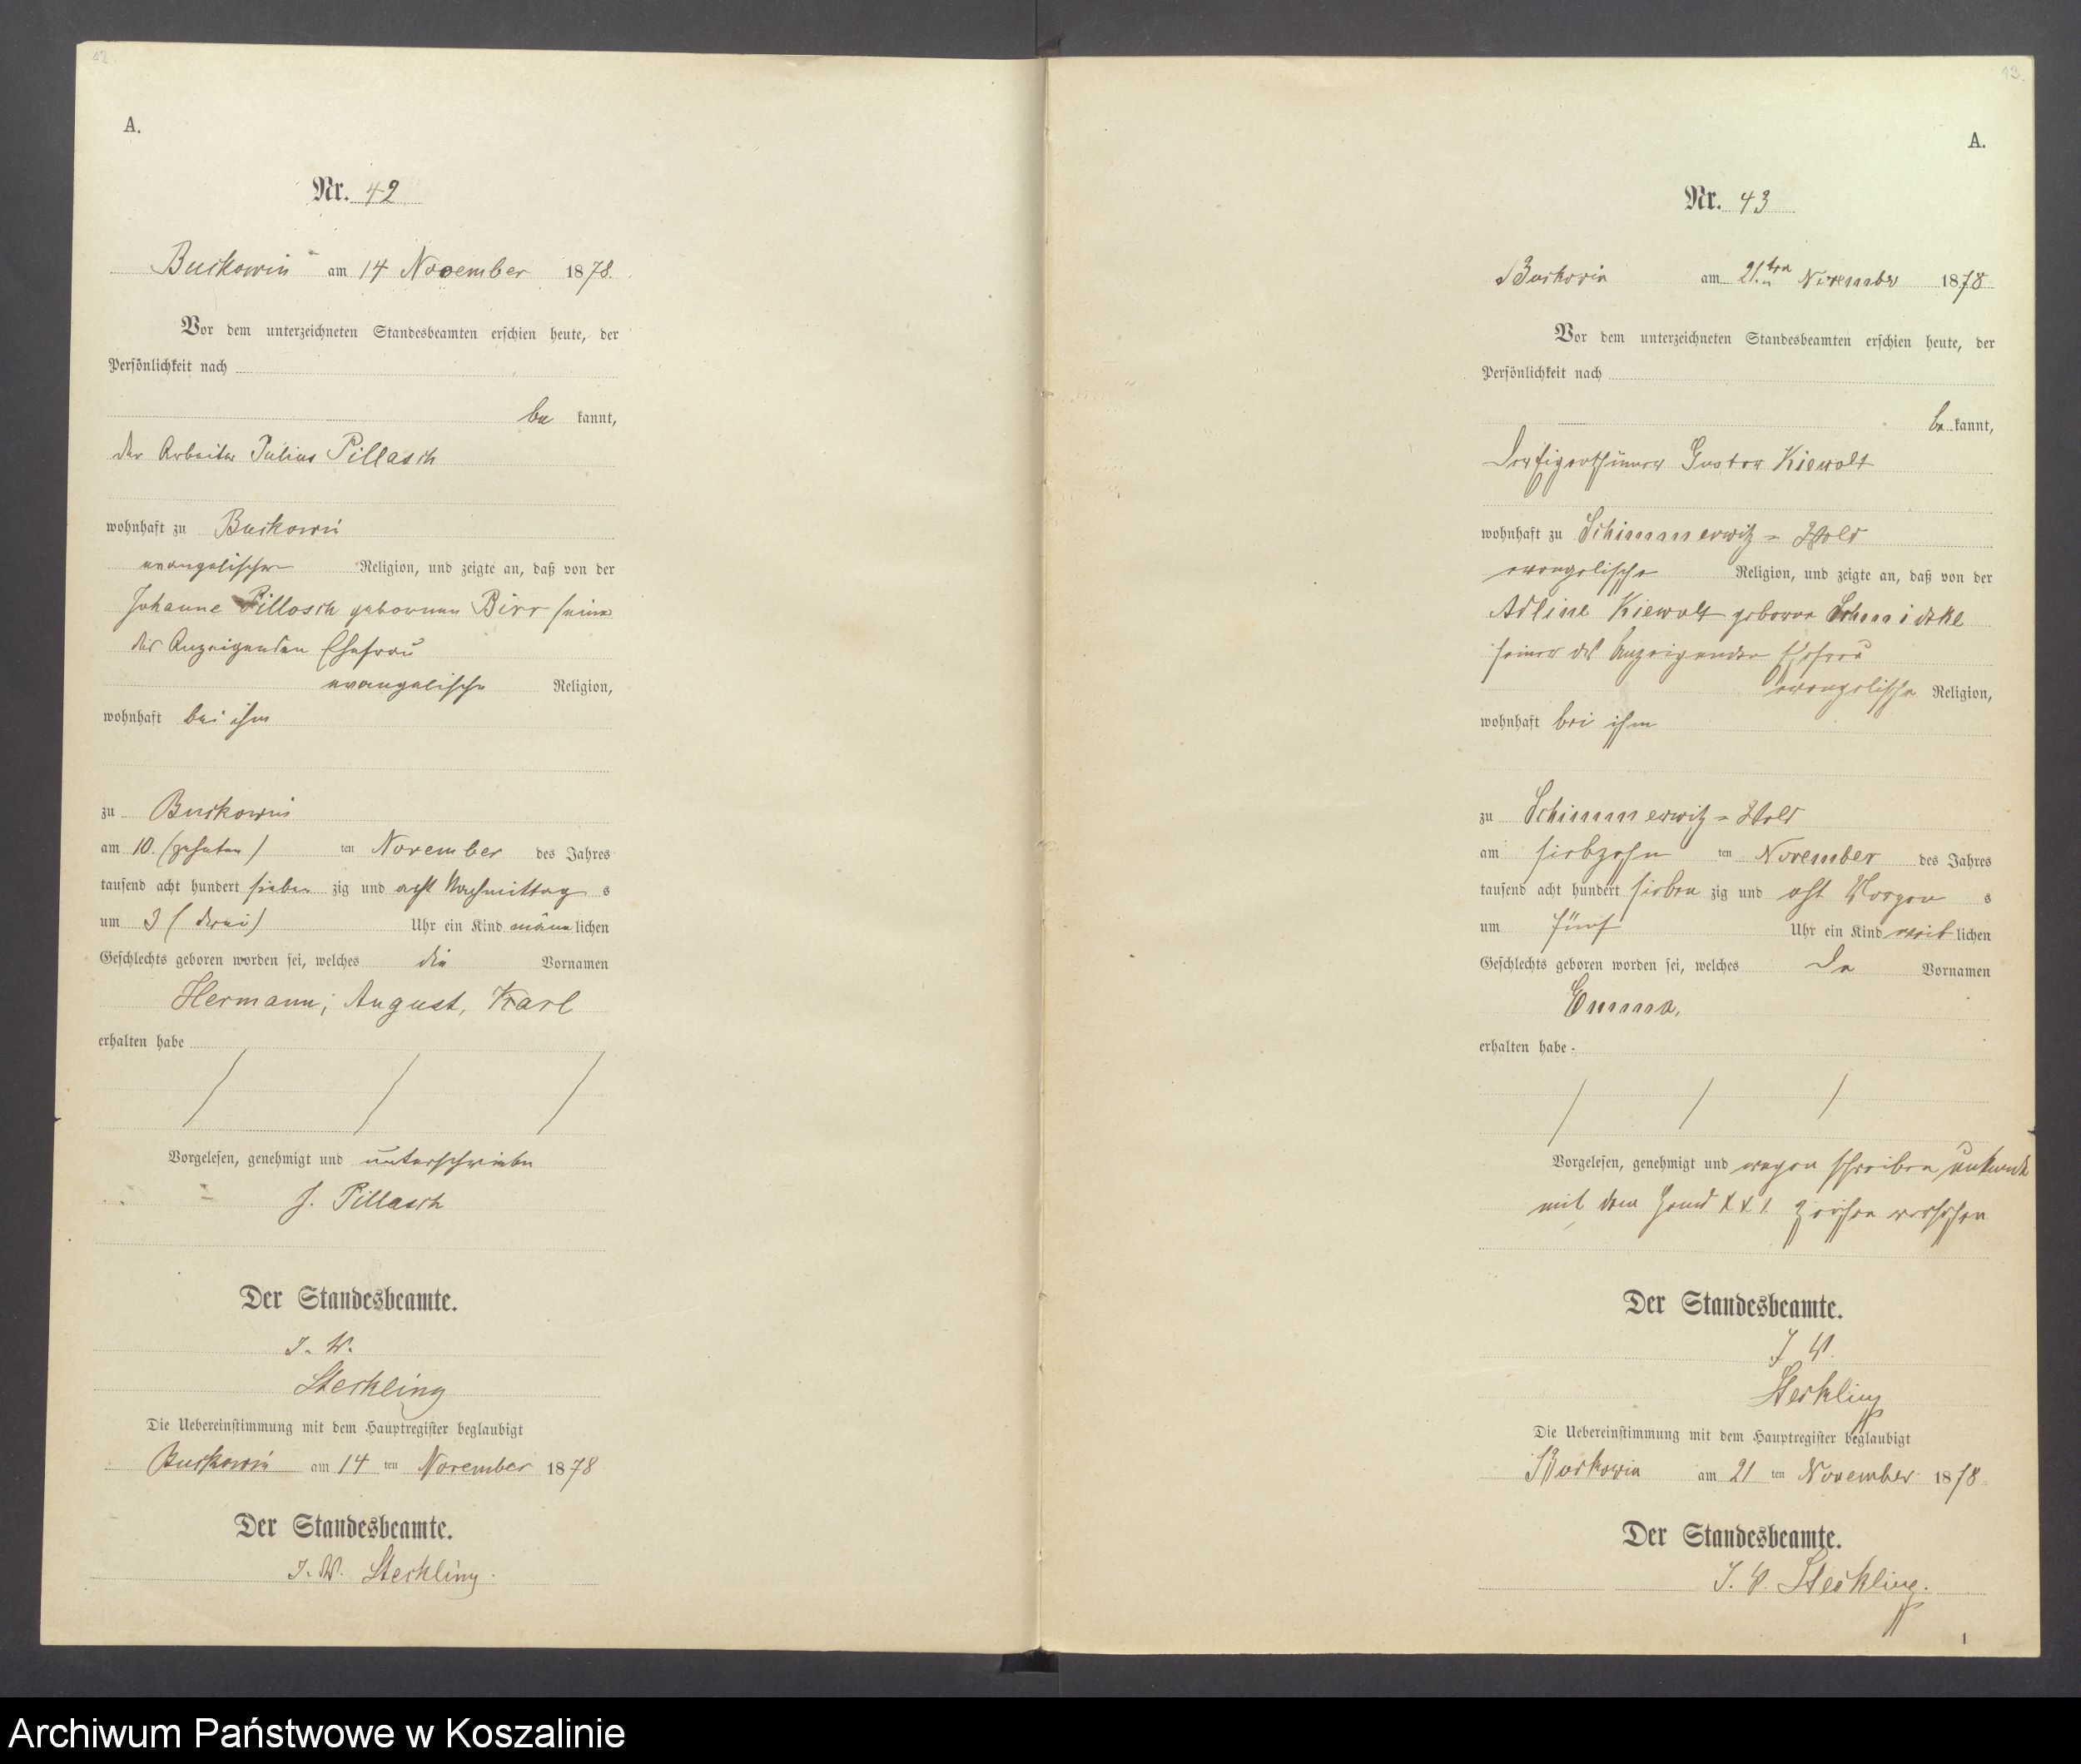 42.
A.
Nr. 42
Buckowin am 14 November 1878.
Vor dem unterzeichneten Standesbeamten erschien heute, der
Persönlichkeit nach
be kannt,
der Arbeiter Julius Pillasch
wohnhaft zu Buckowin
evangelischer Religion, und zeigte an, daß von der
Johanne Pillasch geborenen Birr seine
des Anzeigenden Ehefrau
evangelische Religion,
wohnhaft bei ihm
zu Buckowin
am 10. (zehnten) ten November des Jahres
tausend acht hundert sieben zig und acht Nachmittag s
um 3 (drei) Uhr ein Kind männ lichen
Geschlechts geboren worden sei, welches die Vornamen
Hermann, August, Karl
erhalten habe
Vorgelesen, genehmigt und unterschrieben
J. Pillasch
Der Standesbeamte.
J. V.
Steckling
Die Uebereinstimmung mit dem Hauptregister beglaubigt
Buckowin am 14 ten November 1878
Der Standesbeamte.
J. V. Steckling.
13.
A.
Nr. 43
Buckowin am 21.ten November 1878
Vor dem unterzeichneten Standesbeamten erschien heute, der
Persönlichkeit nach
be kannt,
Der Eigenthümer Gustav Kiewalt
wohnhaft zu Schimmerwitz = Wald
evangelische Religion, und zeigte an, daß von der
Adline Kiewalt geboren Schmidtke
seiner des Anzeigenden Ehefrau
evangelische Religion,
wohnhaft bei ihm
zu Schimmerwitz = Wald
am siebzehn ten November des Jahres
tausend acht hundert sieben zig und acht Morgen s
um fünf Uhr ein Kind weib lichen
Geschlechts geboren worden sei, welches De Vornamen
Emma,
erhalten habe.
Vorgelesen, genehmigt und wegen schreiben unkunde
mit dem Hand X X X Zeichen versehen
Der Standesbeamte.
J V.
Steckling
Die Uebereinstimmung mit dem Hauptregister beglaubigt
Buckowin am 21 ten November 1878
Der Standesbeamte.
J. V. Steckling.
1
Archiwum Państwowe w Koszalinie